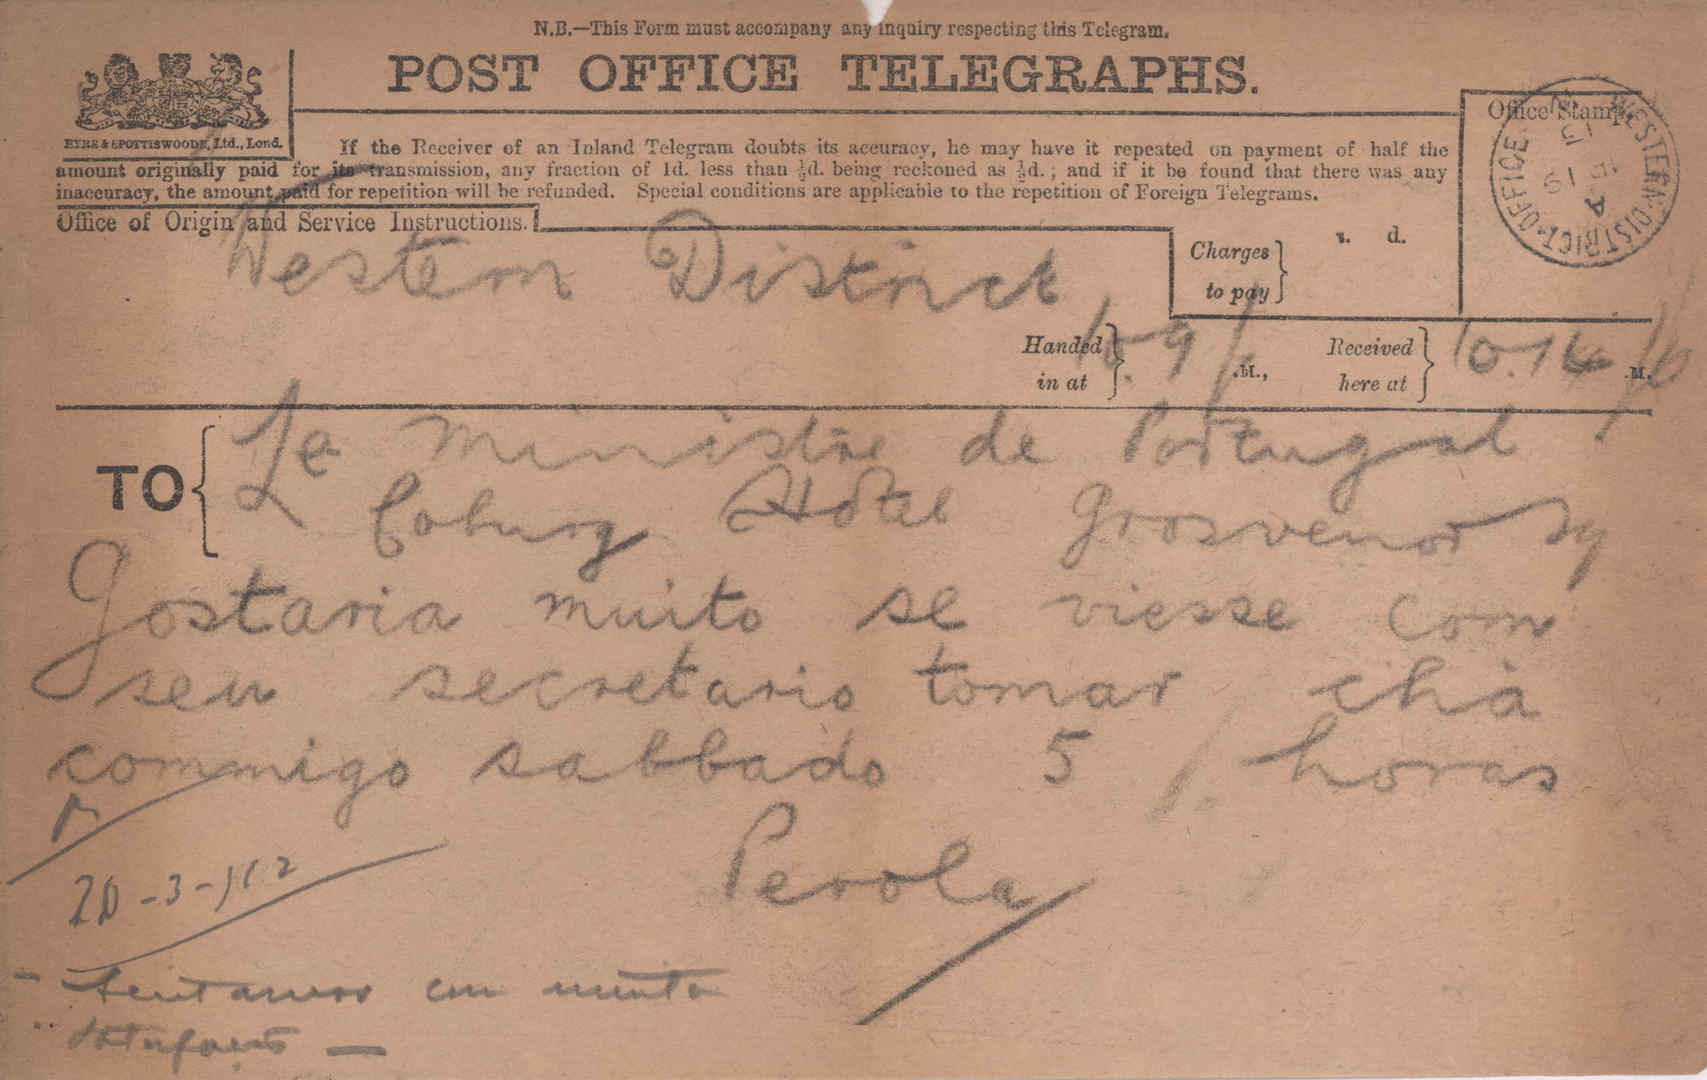 N.B.—This Form must accompany any inquiry respecting this Telegram.
POST OFFICE TELEGRAPHS.
EYRE & SPOTTISWOODE, Ltd., Lond.
If the Receiver of an Inland Telegram doubts its accuracy, he may have it repeated on payment of half the
amount originally paid for its transmission, any fraction of 1d. less than ½d. being reckoned as ½d.; and if it be found that there was any
inaccuracy, the amount paid for repetition will be refunded. Special conditions are applicable to the repetition of Foreign Telegrams.
Office Stamp
WESTERN DISTRICT OFFICE
Office of Origin and Service Instructions.
Western District
Charges to pay
s. d.
Handed in at 10.9 .M.,
Received here at 10.14 .M.
TO
Le ministre de Portugal
Coburg Hotel Grosvenor Sq
Gostaria muito se viesse com
seu secretario tomar chá
commigo sabbado 5 horas
Perola
20-3-912
com muita